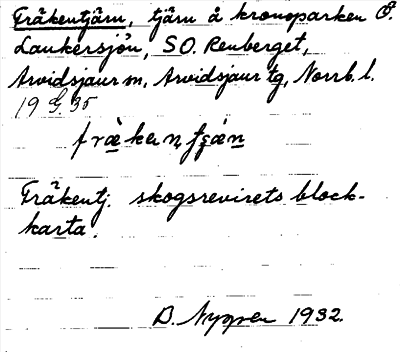 Fräkentjärn, tjärn å kronoparken Ö.
Laukersjön, SO. Renberget,
Arvidsjaur sn, Arvidsjaur tg, Norrb. l.
19 G. 35
Fräkentj. skogsrevirets block-
karta.
B. Nygren 1932.